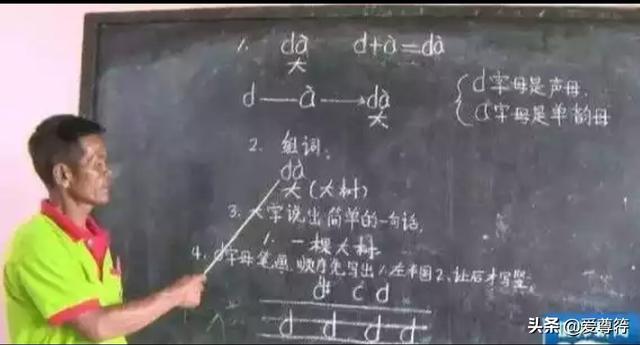 1. dà d+à=dà
大
d — à → dà
大
d字母是声母.
a字母是单韵母
2. 组词.
dà
大(大树)
3. 大字说出简单的一句话.
1. 一棵大树
4. d字母笔画 顺序先写出1.左半圆2.让后才写竖.
c d
d d d d
头条@爱尊符